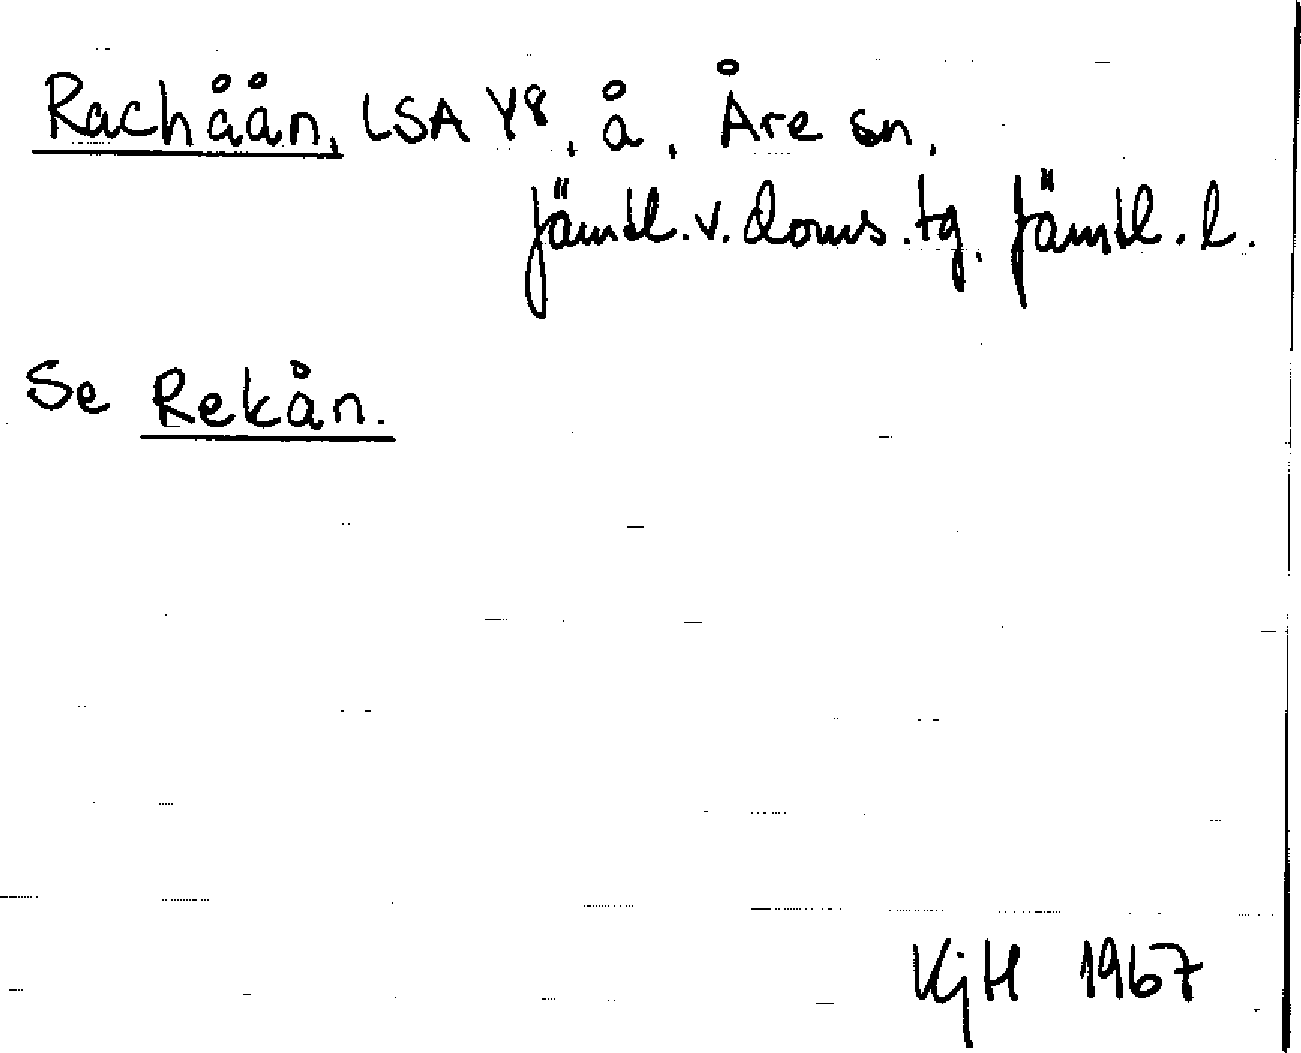 Rachåån, LSA Y8, å, Åre sn,
Jämtl. v. doms. tg, Jämtl. l.
Se Rekån.
KjH 1967